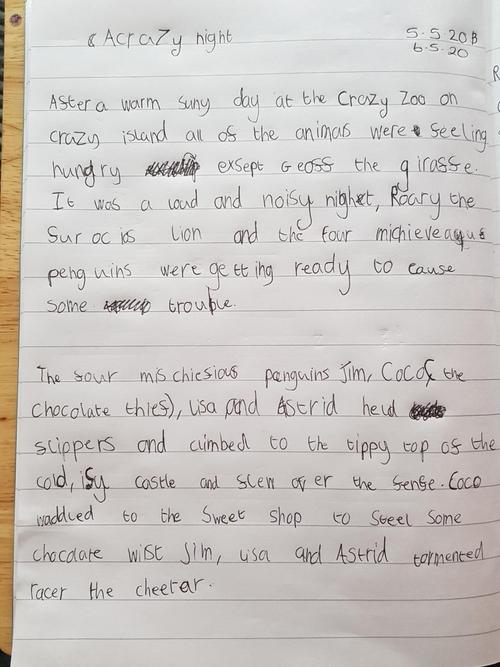 A crazy night
5.5.20 B
6.5.20
R
Aster a warm suny day at the Crazy Zoo on
crazy island all of the animals were seeling
hungry exsept Geoss the girasse.
It was a loud and noisy night, Roary the
Surocios lion and the four michieveaque
penguins were getting ready to cause
some trouble.
The sour mischiesious penguins Jim, Coco (the
chocolate thies), Lisa and Astrid held
slippers and climbed to the tippy top of the
cold, isy castle and slew over the sense. Coco
waddled to the sweet shop to steel some
chocolate wilst Jim, Lisa and Astrid tormented
racer the cheetar.